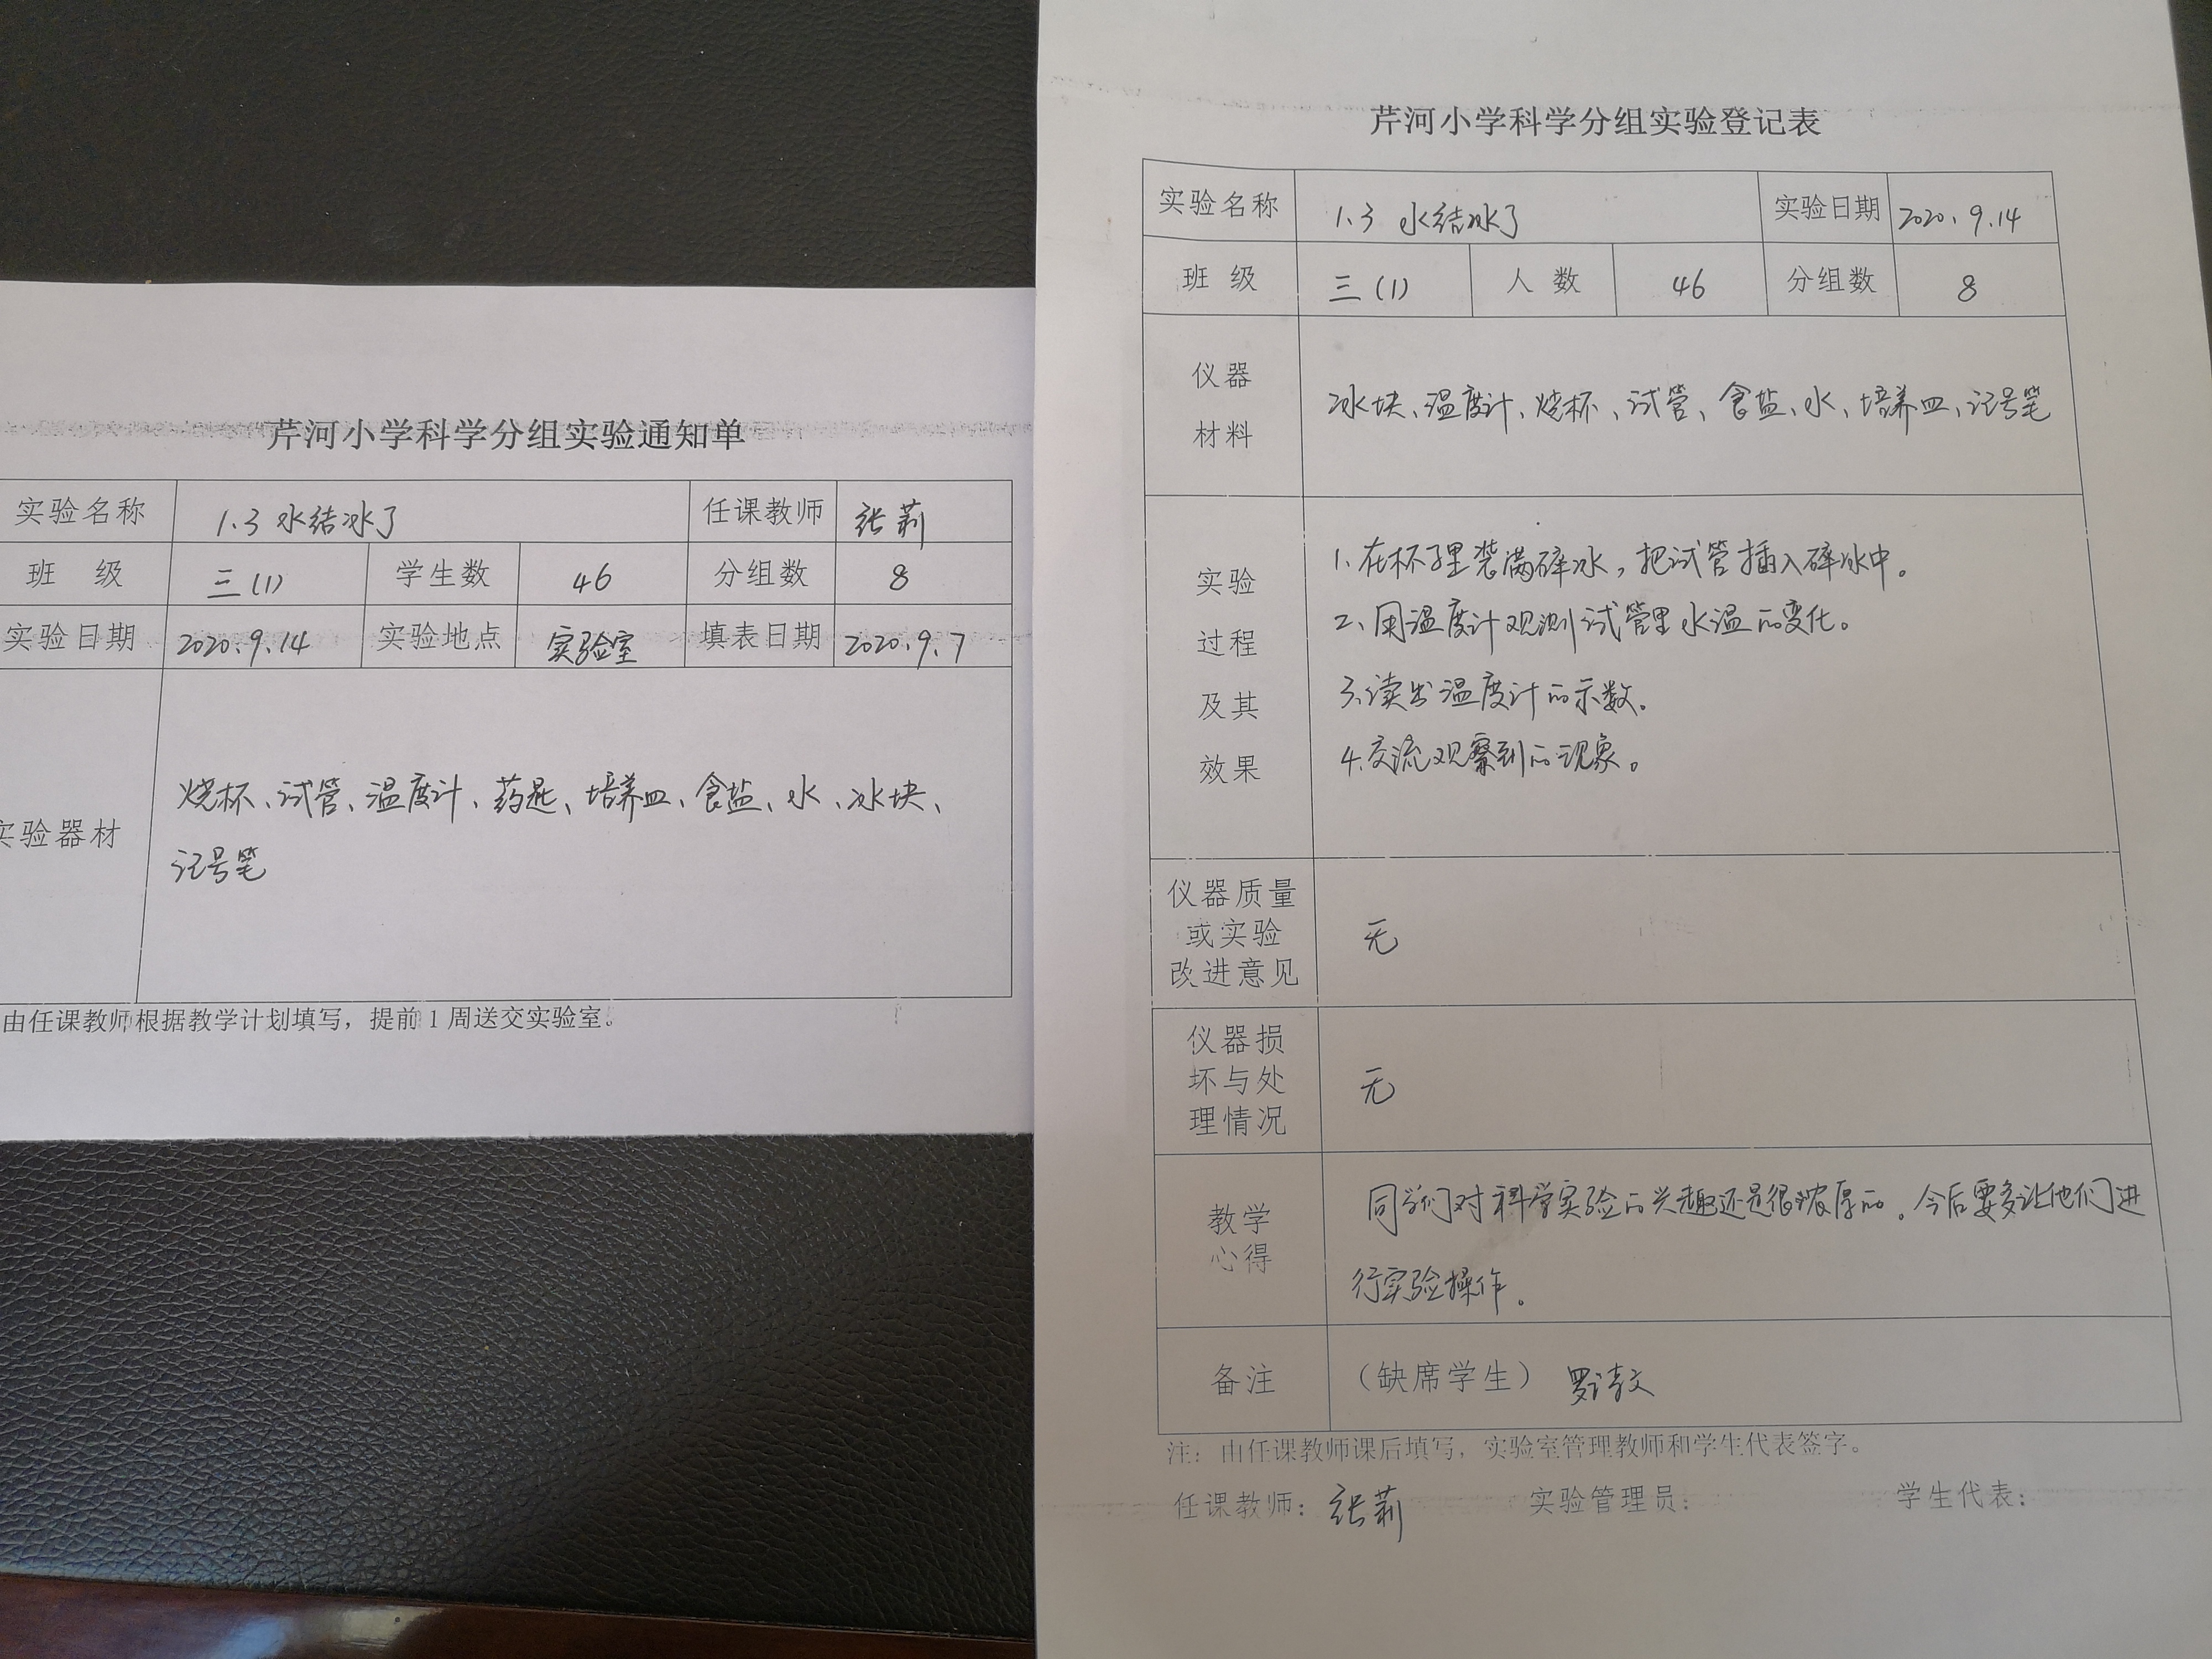 芹河小学科学分组实验通知单
实验名称 1.3 水结冰了 任课教师 张莉
班 级 三(1) 学生数 46 分组数 8
实验日期 2020.9.14 实验地点 实验室 填表日期 2020.9.7
实验器材 烧杯、试管、温度计、药匙、培养皿、食盐、水、冰块、
记号笔
由任课教师根据教学计划填写，提前1周送交实验室。
芹河小学科学分组实验登记表
实验名称 1.3 水结冰了 实验日期 2020.9.14
班 级 三(1) 人 数 46 分组数 8
仪器
材料
冰块、温度计、烧杯、试管、食盐、水、培养皿、记号笔
实验
过程
及其
效果
1.在杯子里装满碎冰，把试管插入碎冰中。
2.用温度计观测试管里水温的变化。
3.读出温度计的示数。
4.交流观察到的现象。
仪器质量
或实验
改进意见
无
仪器损
坏与处
理情况
无
教学
心得
同学们对科学实验的兴趣还是很浓厚的。今后要多让他们进
行实验操作。
备注 （缺席学生） 罗诗文
注：由任课教师课后填写，实验室管理教师和学生代表签字。
任课教师：张莉 实验管理员： 学生代表：